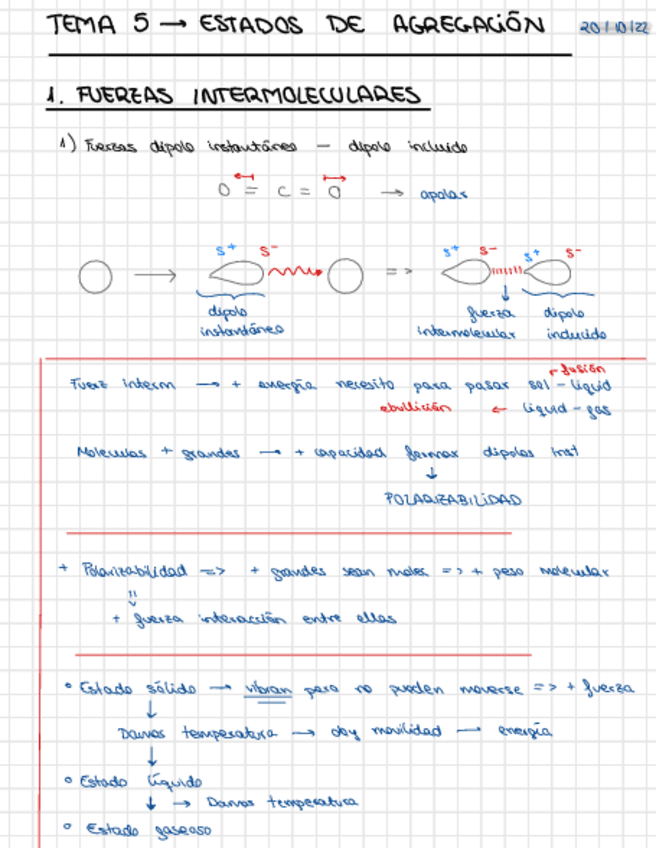 TEMA 5 → ESTADOS DE AGREGACIÓN 20/10/22
1. FUERZAS INTERMOLECULARES
1) Fuerzas dipolo instantáneo - dipolo incluido
O = C = O → apolar
δ+ δ- δ+ δ- δ+ δ-
→ =>
dipolo instantáneo
fuerza intermolecular
dipolo inducido
fusión
Fuerz interm → + energía necesito para pasar sol - liquid
ebullición ← liquid - gas
Moleculas + grandes → + capacidad formar dipolos inst
↓
POLARIZABILIDAD
+ Polarizabilidad => + grandes sean molec => + peso molecular
+ fuerza interacción entre ellas
° Estado sólido → vibran pero no pueden moverse => + fuerza
↓
Damos temperatura → movilidad → energía
↓
° Estado líquido
↓ → Damos temperatura
° Estado gaseoso